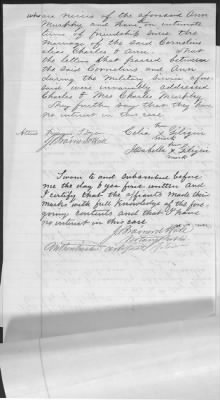 who are nieces of the aforesaid Ann
Murphy and have an intimate
time of friendship since the
marriage of the said Cornelius
alias Charles & Ann. That
the letters that passed between
the said Cornelius and Ann
during the Military Service afore
said were invariably addressed
Charles & Mrs Charles Murphy.
They further say that they have
no interest in this case
Attest
Celia
her
mark
her
mark
Sworn to and subscribed before
me the day & year first written and
I certify that the affiants made their
marks with full knowledge of the fore
going contents and that I have
no interest in this case